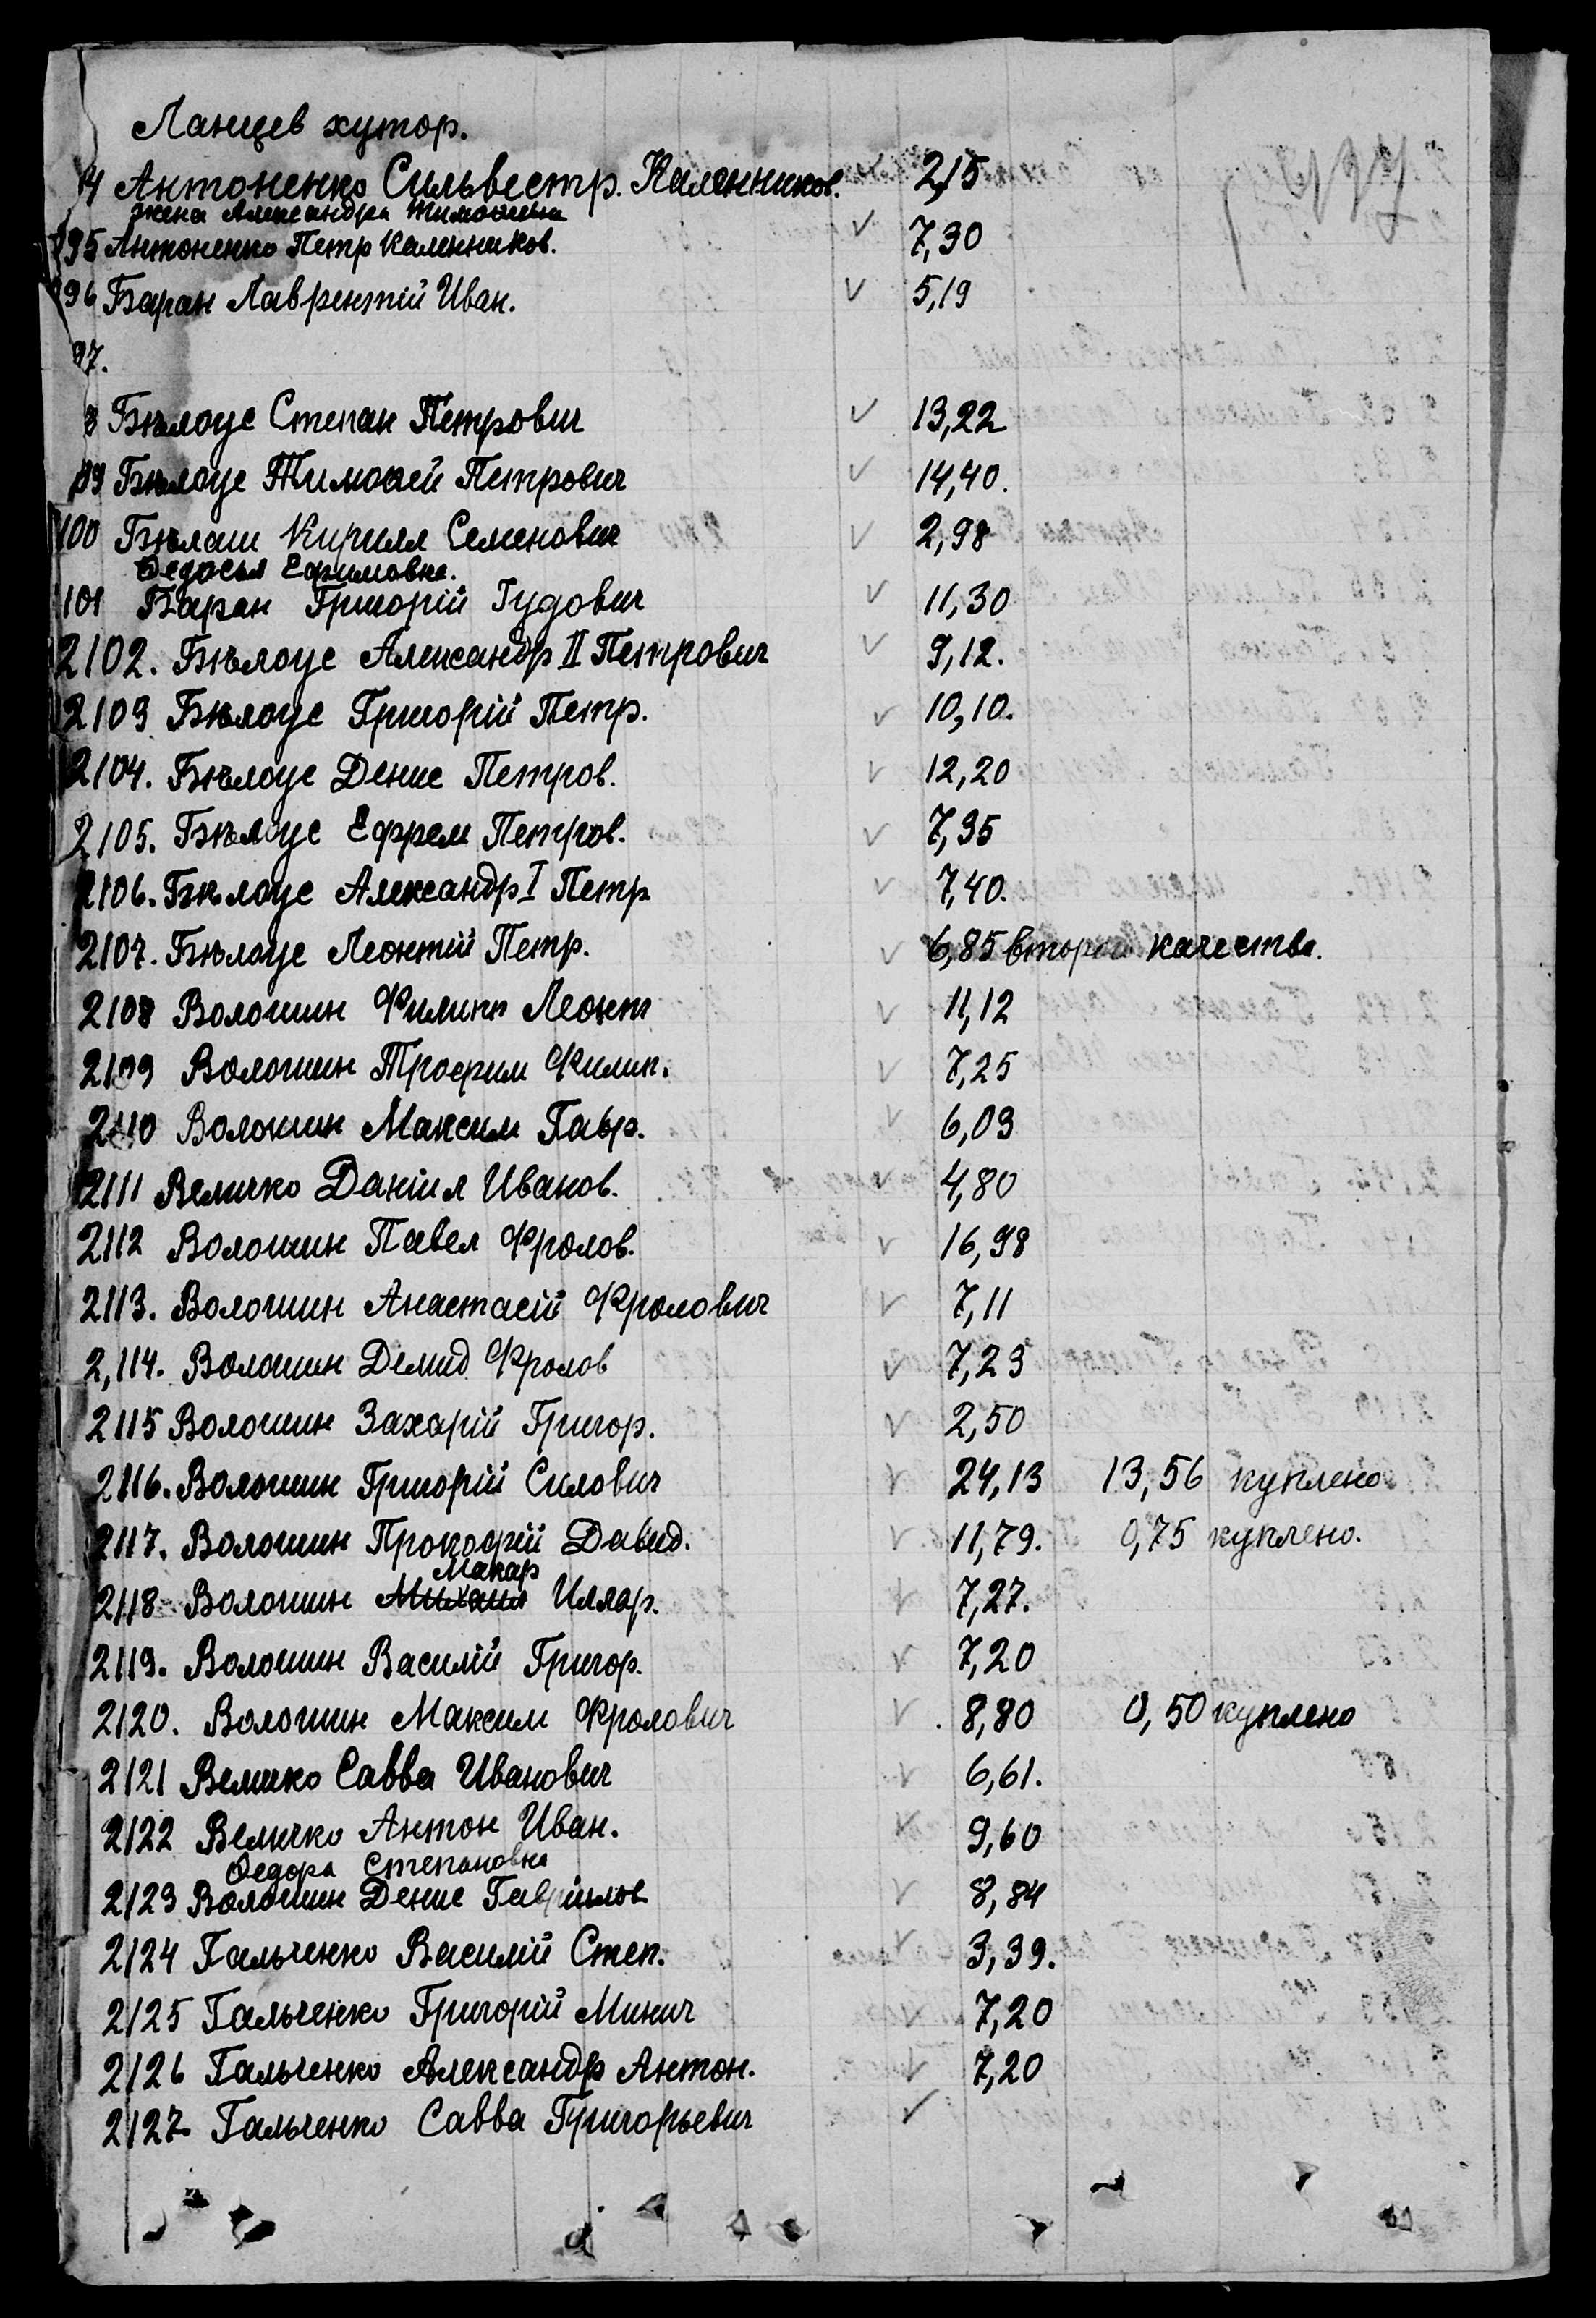 Ланцев хутор.
94 Антоненко Сильвестр. Каленников. 2,15
жена Александра Тимофѣева
95 Антоненко Петр Каленников. 7,30
96 Баран Лаврентій Иван. 5,19
97.
8 Бѣлоус Степан Петрович 13,22
99 Бѣлоус Тимоѳей Петрович 14,40.
100 Бѣлаш Кирилл Семенович 2,98
Ѳедосья Ефимовна.
101 Баран Григорій Гудович 11,30
2102. Бѣлоус Александр II Петрович 9,12.
2103 Бѣлоус Григорій Петр. 10,10.
2104. Бѣлоус Денис Петров. 12,20
2105. Бѣлоус Ефрем Петров. 7,35
2106. Бѣлоус Александр I Петр 7,40.
2107. Бѣлоус Леонтій Петр. 6,85 второго качества.
2108 Волошин Филипп Леонт 11,12
2109 Волошин Трофим Филип. 7,25
2110 Волошин Максим Гавр. 6,03
2111 Величко Даніил Иванов. 4,80
2112 Волошин Павел Фролов. 16,98
2113. Волошин Анастасій Фролович 7,11
2,114. Волошин Демид Фролов 7,23
2115 Волошин Захарій Григор. 2,50
2116. Волошин Григорій Силович 24,13 13,56 куплено
2117. Волошин Прокофій Давид. 11,79. 0,75 куплено.
Макар
2118 Волошин Михаил Иллар. 7,27.
2119. Волошин Василій Григор. 7,20
2120. Волошин Максим Фролович 8,80 0,50 куплено
2121 Величко Савва Иванович 6,61.
2122 Величко Антон Иван. 9,60
Ѳедора Степановна
2123 Волошин Денис Гаврилов 8,84
2124 Гальченко Василій Степ. 3,39.
2125 Гальченко Григорій Минич 7,20
2126 Гальченко Александр Антон. 7,20
2127 Гальченко Савва Григорьевич